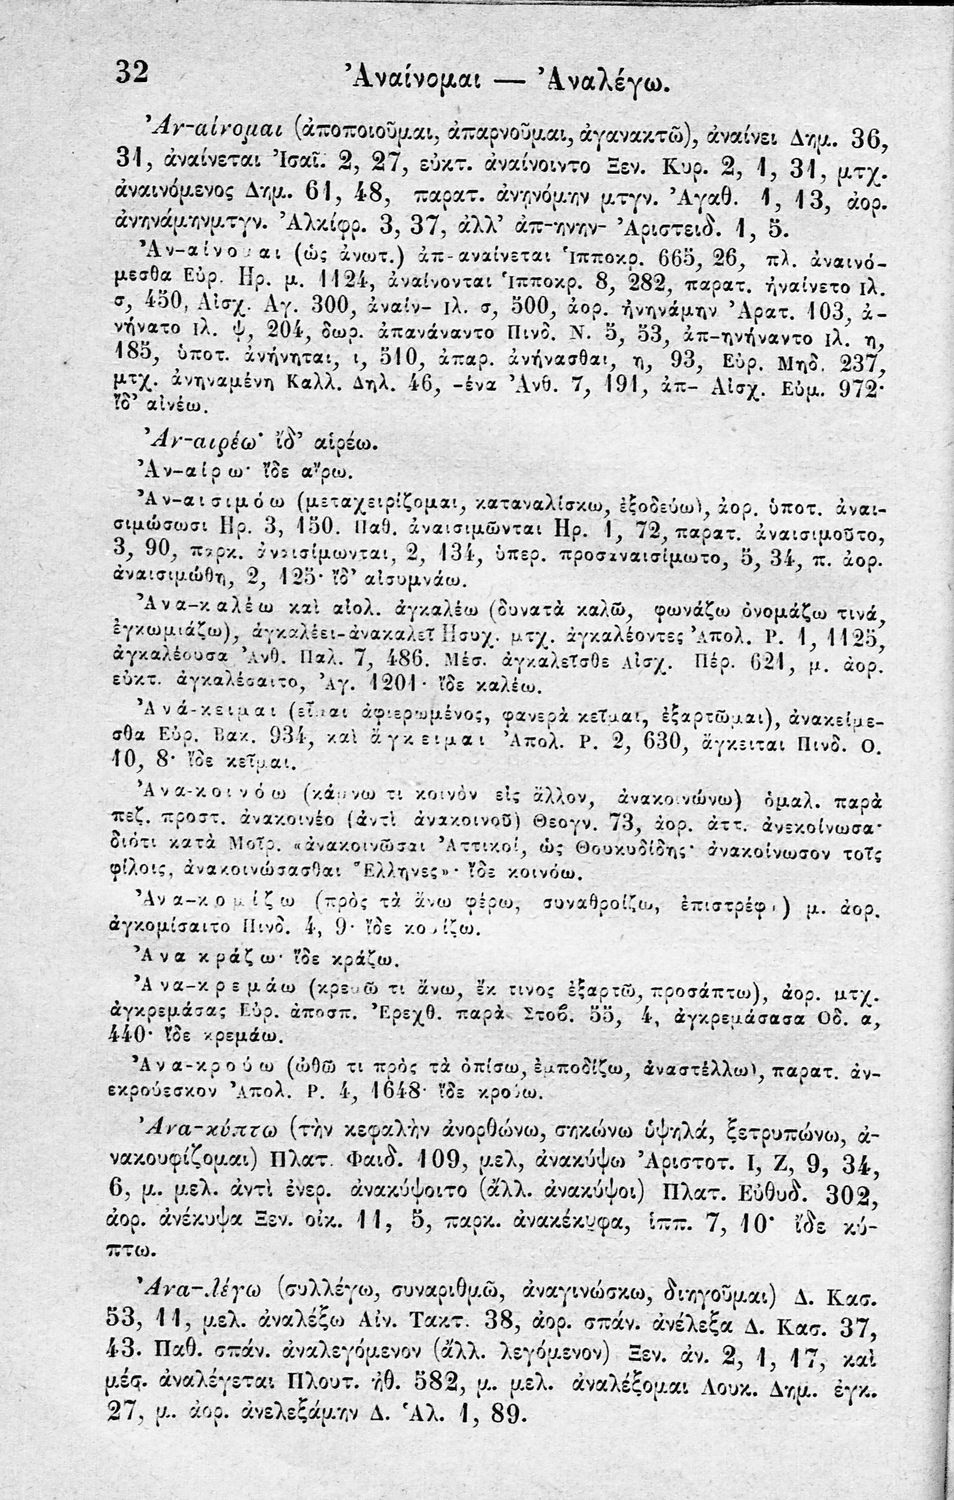 32
Ἀναίνομαι — Ἀναλέγω.
Ἀν-αίνομαι (ἀποποιοῦμαι, ἀπαρνοῦμαι, ἀγανακτῶ), ἀναίνει Δημ. 36,
31, ἀναίνεται Ἰσαῖ. 2, 27, εὐκτ. ἀναίνοιντο Ξεν. Κυρ. 2, 1, 31, μτχ.
ἀναινόμενος Δημ. 61, 48, παρατ. ἀνῃνόμην μτγν. Ἀγαθ. 1, 13, ἀορ.
ἀνηνάμηνμτγν. Ἀλκίφρ. 3, 37, ἀλλ' ἀπ-ηνην- Ἀριστειδ. 1, 5.
Ἀν-αίνομαι (ὡς ἀνωτ.) ἀπ-αναίνεται Ἱπποκρ. 665, 26, πλ. ἀναινό-
μεσθα Εὐρ. Ηρ. μ. 1124, ἀναίνονται Ἱπποκρ. 8, 282, παρατ. ἠναίνετο ιλ.
σ, 450, Αἰσχ. Αγ. 300, ἀναίν- ιλ. σ, 500, ἀορ. ἠνηνάμην Ἀρατ. 103, ἀ-
νήνατο ιλ. ψ, 204, δωρ. ἀπανάναντο Πινδ. Ν. 5, 53, ἀπ-ηνήναντο ιλ. η,
185, ὑποτ. ἀνήνηται, ι, 510, ἀπαρ. ἀνήνασθαι, η, 93, Εὐρ. Μηδ. 237,
μτχ. ἀνηναμένη Καλλ. Δηλ. 46, -ένα Ἀνθ. 7, 191, ἀπ- Αἰσχ. Εὐμ. 972·
ἴδ' αἰνέω.
Ἀν-αιρέω· ἴδ' αἱρέω.
Ἀν-αίρω· ἴδε αἴρω.
Ἀν-αισιμόω (μεταχειρίζομαι, καταναλίσκω, ἐξοδεύω), ἀορ. ὑποτ. ἀναι-
σιμώσωσι Ηρ. 3, 150. Παθ. ἀναισιμῶνται Ηρ. 1, 72, παρατ. ἀναισιμοῦτο,
3, 90, παρκ. ἀναισίμωνται, 2, 134, ὑπερ. προσαναισίμωτο, 5, 34, π. ἀορ.
ἀναισιμώθη, 2, 125· ἴδ' αἰσυμνάω.
Ἀνα-καλέω καὶ αἰολ. ἀγκαλέω (δυνατὰ καλῶ, φωνάζω ὀνομάζω τινά,
ἐγκωμιάζω), ἀγκαλέει-ἀνακαλεῖ Ησυχ. μτχ. ἀγκαλέοντες Ἀπολ. Ρ. 1, 1125,
ἀγκαλέουσα Ἀνθ. Παλ. 7, 486. Μέσ. ἀγκαλεῖσθε Αἰσχ. Πέρ. 621, μ. ἀορ.
εὐκτ. ἀγκαλέσαιτο, Ἀγ. 1201· ἴδε καλέω.
Ἀνά-κειμαι (εἶμαι ἀφιερωμένος, φανερὰ κεῖμαι, ἐξαρτῶμαι), ἀνακείμε-
σθα Εὐρ. Βακ. 934, καὶ ἄγκειμαι Ἀπολ. Ρ. 2, 630, ἄγκειται Πινδ. Ο.
10, 8· ἴδε κεῖμαι.
Ἀνα-κοινόω (κάμνω τι κοινὸν εἰς ἄλλον, ἀνακοινώνω) ὁμαλ. παρὰ
πεζ. προστ. ἀνακοινέο (ἀντὶ ἀνακοινοῦ) Θεογν. 73, ἀορ. ἀττ. ἀνεκοίνωσα·
διότι κατὰ Μοῖρ. «ἀνακοινῶσαι Ἀττικοί, ὡς Θουκυδίδης· ἀνακοίνωσον τοῖς
φίλοις, ἀνακοινώσασθαι Ἕλληνες»· ἴδε κοινόω.
Ἀνα-κομίζω (πρὸς τὰ ἄνω φέρω, συναθροίζω, ἐπιστρέφω) μ. ἀορ.
ἀγκομίσαιτο Πινδ. 4, 9· ἴδε κομίζω.
Ἀνακράζω· ἴδε κράζω.
Ἀνα-κρεμάω (κρεμῶ τι ἄνω, ἔκ τινος ἐξαρτῶ, προσάπτω), ἀορ. μτχ.
ἀγκρεμάσας Εὐρ. ἀποσπ. Ἐρεχθ. παρὰ Στοβ. 55, 4, ἀγκρεμάσασα Οδ. α,
440· ἴδε κρεμάω.
Ἀνα-κρούω (ὠθῶ τι πρὸς τὰ ὀπίσω, ἐμποδίζω, ἀναστέλλω), παρατ. ἀν-
εκρούεσκον Ἀπολ. Ρ. 4, 1648· ἴδε κρούω.
Ἀνα-κύπτω (τὴν κεφαλὴν ἀνορθώνω, σηκώνω ὑψηλά, ξετρυπώνω, ἀ-
νακουφίζομαι) Πλατ. Φαιδ. 109, μελ, ἀνακύψω Ἀριστοτ. Ι, Ζ, 9, 34,
6, μ. μελ. ἀντὶ ἐνερ. ἀνακύψοιτο (ἄλλ. ἀνακύψοι) Πλατ. Εὐθυδ. 302,
ἀορ. ἀνέκυψα Ξεν. οἰκ. 11, 5, παρκ. ἀνακέκυφα, ἱππ. 7, 10· ἴδε κύ-
πτω.
Ἀνα-λέγω (συλλέγω, συναριθμῶ, ἀναγινώσκω, διηγοῦμαι) Δ. Κασ.
53, 11, μελ. ἀναλέξω Αἰν. Τακτ. 38, ἀορ. σπάν. ἀνέλεξα Δ. Κασ. 37,
43. Παθ. σπάν. ἀναλεγόμενον (ἄλλ. λεγόμενον) Ξεν. ἀν. 2, 1, 17, καὶ
μέσ. ἀναλέγεται Πλουτ. ἠθ. 582, μ. μελ. ἀναλέξομαι Λουκ. Δημ. ἐγκ.
27, μ. ἀορ. ἀνελεξάμην Δ. Ἁλ. 1, 89.